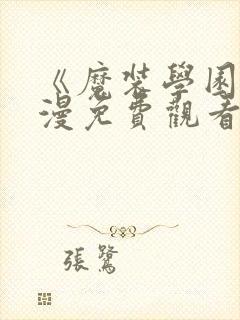 《魔裝學園
漫免費觀看
張鷺